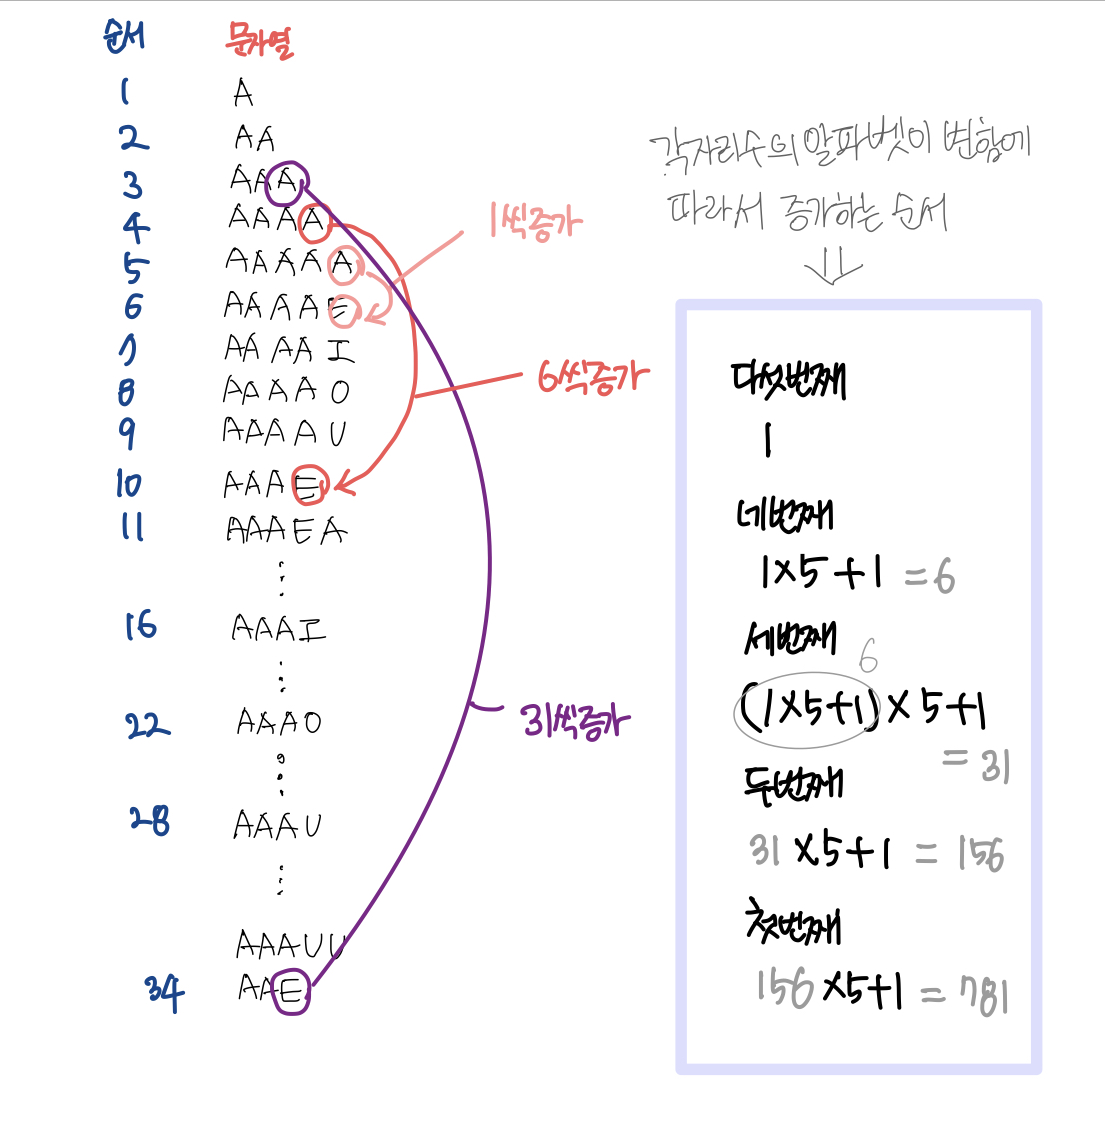 순서 문자열
1 A
2 AA
3 AAA
4 AAAA
5 AAAAA
6 AAAAE
7 AAAAI
8 AAAAO
9 AAAAU
10 AAAE
11 AAAEA
16 AAAI
22 AAAO
28 AAAU
AAAUU
34 AAE
1씩증가
6씩증가
31씩증가
각자리수의 알파벳이 변함에
따라서 증가하는 순서
다섯번째
1
네번째
1×5+1 =6
세번째
6
(1×5+1)×5+1
= 31
두번째
31×5+1 = 156
첫번째
156×5+1 = 781